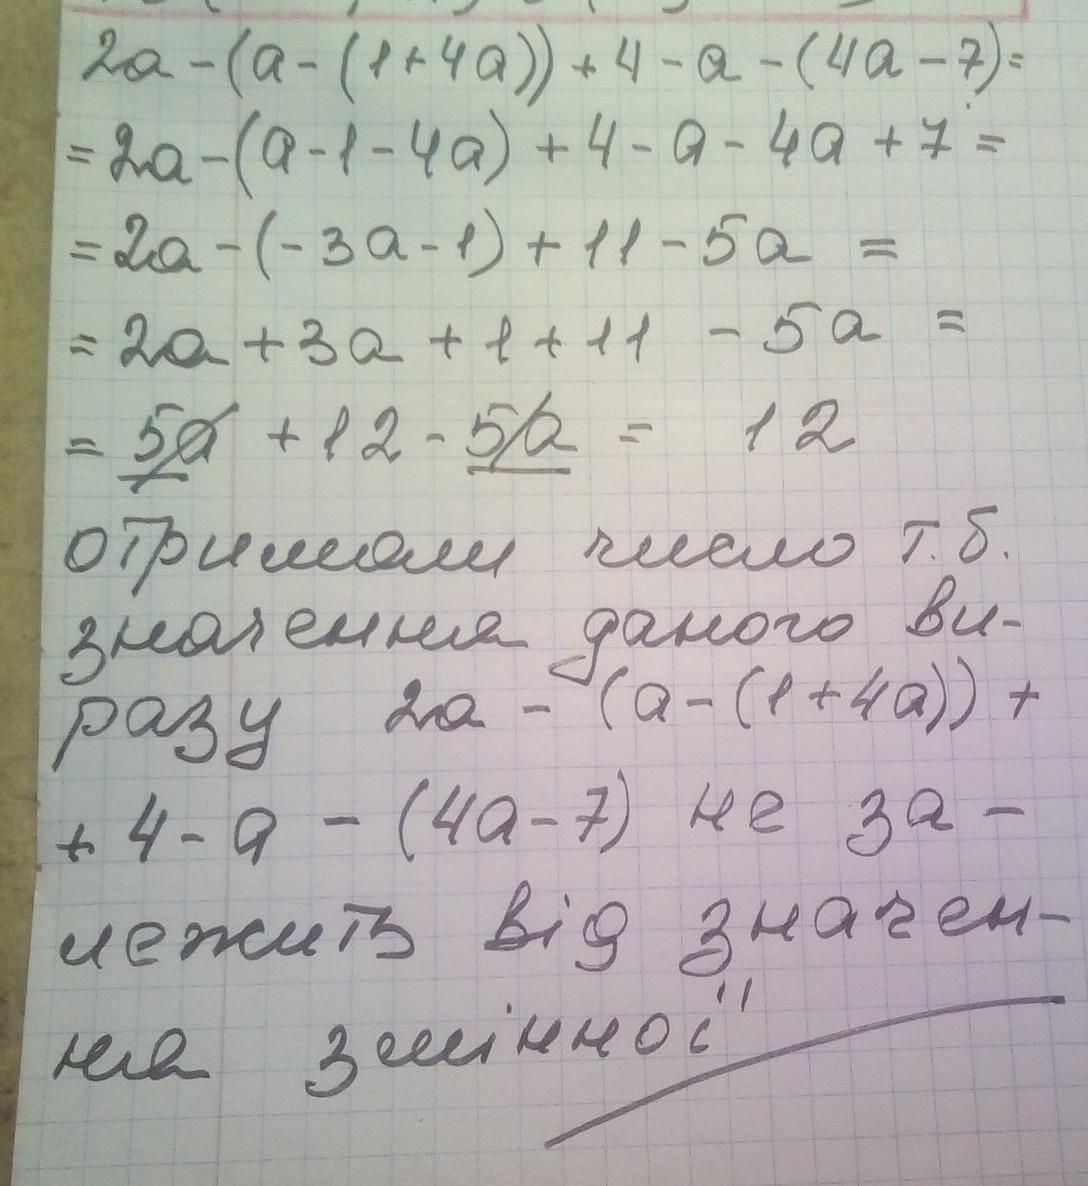 2a-(a-(1+4a))+4-a-(4a-7)=
=2a-(a-1-4a)+4-a-4a+7=
=2a-(-3a-1)+11-5a =
=2a+3a+1+11 -5a =
=5a +12-5a = 12
отримали число т.б.
значення даного ви-
разу 2a - (a-(1+4a)) +
+ 4-a - (4a-7) не за-
лежить від значен-
ня змінної